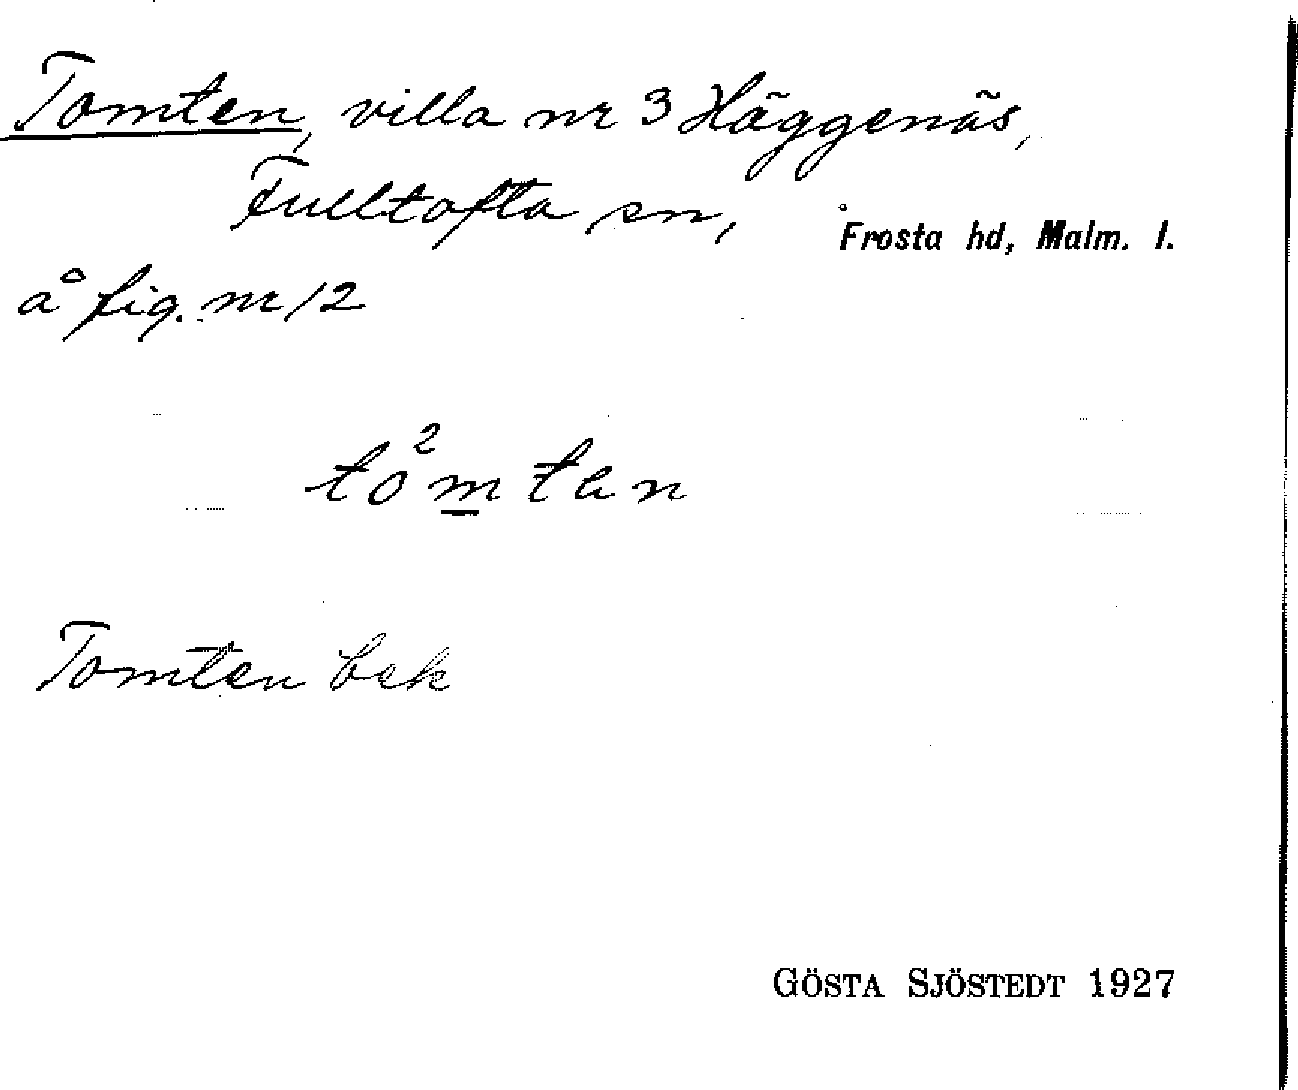 Tomten, villa nr 3 Häggenäs,
Fulltofta sn, Frosta hd, Malm. l.
å fig. nr 12
to²m̲tən
Tomten bek
GÖSTA SJÖSTEDT 1927